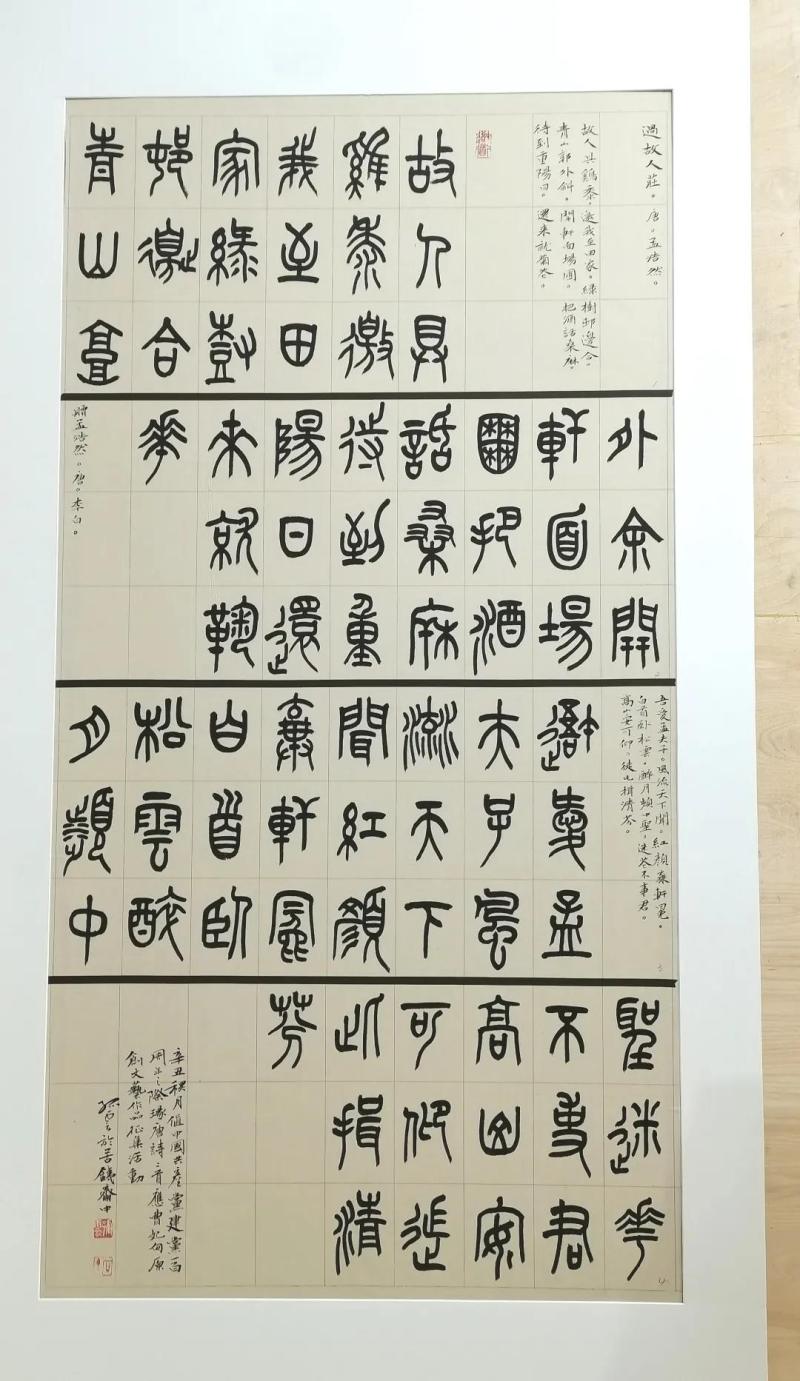 過故人莊。唐。孟浩然。
故人具鷄黍。邀我至田家。綠樹邨邊合。
青山郭外斜。開軒面場圃。把酒話桑麻。
待到重陽日。還來就菊花。
故人具
雞黍徼
我至田
家綠樹
邨邊合
青山郭
外余開
軒面場
圃把酒
話桑麻
待到重
陽日還
來就鞠
華
贈孟浩然。唐。李白。
吾愛孟夫子。風流天下聞。紅顏棄軒冕。
白首卧松雲。醉月頻中聖。迷花不事君。
高山安可仰。徒此揖清芬。
吾愛孟
夫子風
流天下
聞紅顏
棄軒冕
白首臥
松雲醉
月頻中
聖迷華
不事君
高山安
可仰徒
此揖清
芬
辛丑秋月值中國共產黨建黨一百
周年之際琢唐詩二首應曹妃甸原
創文藝作品征集活動
於苦鐵齋中